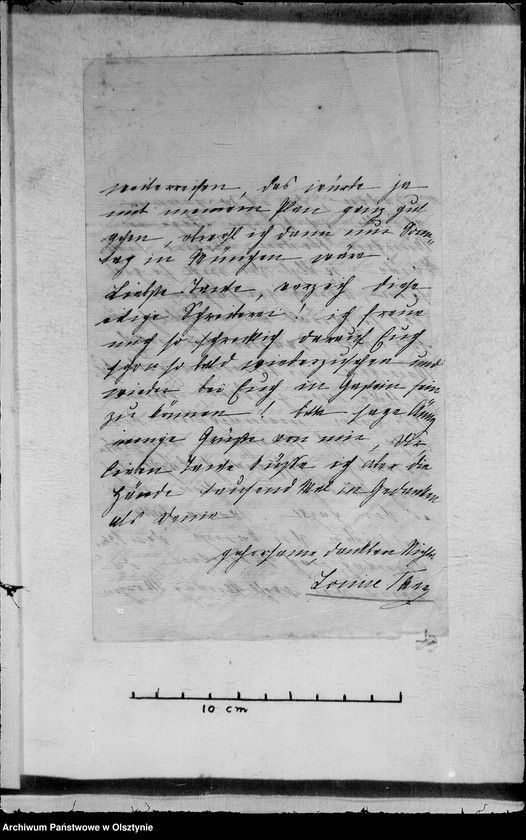 weiterreisen, das würde ja
mit meinem Plan ganz gut
gehen, obwohl ich dann nur Sonn-
tag in München wäre.
Liebste Tante, verzeih diese
eilige Schreiberei! ich freue
mich so schrecklich darauf Euch
schon so bald wiederzusehen und
wieder bei Euch in Gastein sein
zu können! bitte sage
innige Grüße von mir, Dir
lieben Tante küsse ich aber die
Hände tausend Mal in Gedanken
als Deine
gehorsame, dankbare Nichte
10 cm
Archiwum Państwowe w Olsztynie